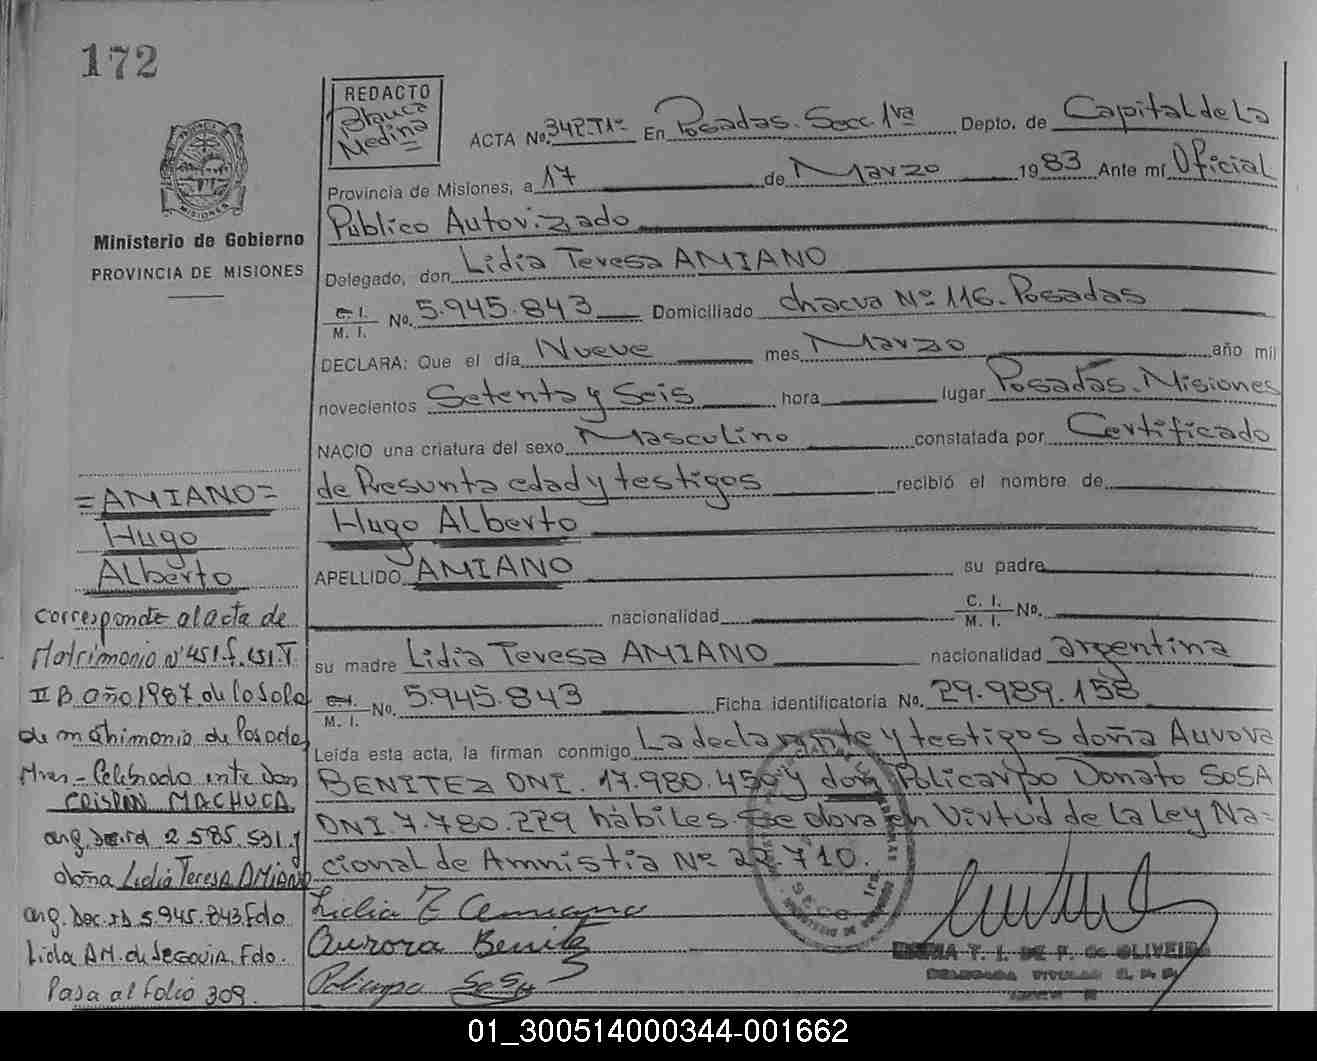 172
REDACTO
Blanca
Medina
ACTA No. 342-T1º En Posadas. Secc. 1ra Depto. de Capital de La
Provincia de Misiones, a 17 de Marzo 1983 Ante mí Oficial
Publico Autorizado
Delegado, don Lidia Teresa AMIANO
C. I.
M. I. No. 5.945.843 Domiciliado chacra Nº 116. Posadas
DECLARA: Que el día Nueve mes Marzo año mil
novecientos Setenta y Seis hora lugar Posadas. Misiones
NACIO una criatura del sexo Masculino constatada por Certificado
de Presunta edad y testigos recibió el nombre de
Hugo Alberto
APELLIDO AMIANO su padre
nacionalidad C. I.
M. I. No.
su madre Lidia Teresa AMIANO nacionalidad argentina
C. I.
M. I. No. 5.945.843 Ficha identificatoria No. 29.989.158
Leída esta acta, la firman conmigo La declarante y testigos doña Aurora
BENITEZ DNI. 17.980.450 y don Policarpo Donato SOSA
DNI. 7.780.229 hábiles en Virtud de la Ley Na=
cional de Amnistia Nº 22.710.
Lidia T Amiano
Aurora Benitez
Policarpo Sosa
T. I. DE F. de OLIVEIRA
DELEGADA TITULAR
Ministerio de Gobierno
PROVINCIA DE MISIONES
MISIONES
=AMIANO=
Hugo
Alberto
corresponde al acta de
Matrimonio Nº 451.f.151.T.
II B año 1987 de la sala
de matrimonio de Posadas
Mnes - Celebrado ante don
CRISPIN MACHUCA
arg. 2.585.531 y
doña Lidia Teresa AMIANO
arg. Doc. Id 5.945.843 Fdo.
Lidia AM. de SEGOVIA. Fdo.
Pasa al folio 309.
01_300514000344-001662